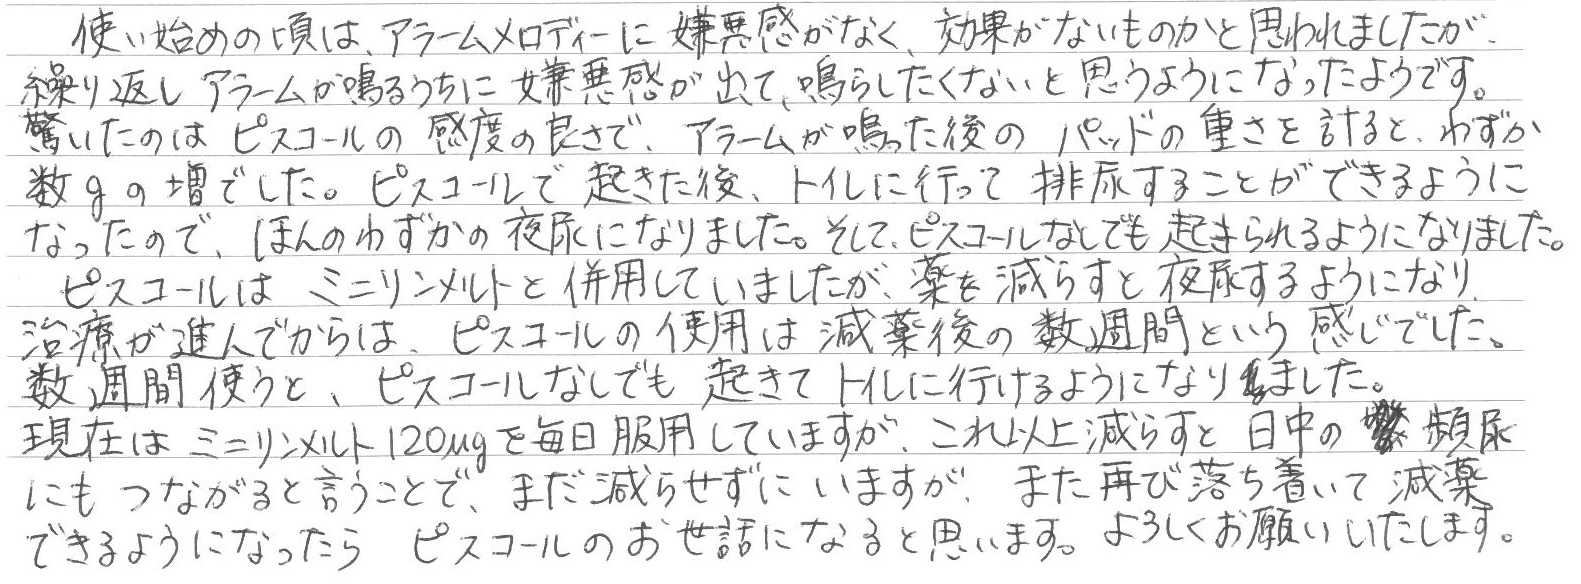 使い始めの頃は、アラームメロディーに嫌悪感がなく、効果がないものかと思われましたが、
繰り返しアラームが鳴るうちに嫌悪感が出て、鳴らしたくないと思うようになったようです。
驚いたのはピスコールの感度の良さで、アラームが鳴った後のパッドの重さを計ると、わずか
数gの増でした。ピスコールで起きた後、トイレに行って排尿することができるように
なったので、ほんのわずかの夜尿になりました。そして、ピスコールなしでも起きられるようになりました。
ピスコールはミニリンメルトと併用していましたが、薬を減らすと夜尿するようになり、
治療が進んでからは、ピスコールの使用は減薬後の数週間という感じでした。
数週間使うと、ピスコールなしでも起きてトイレに行けるようになりました。
現在はミニリンメルト120μgを毎日服用していますが、これ以上減らすと日中の頻尿
にもつながると言うことで、まだ減らせずにいますが、また再び落ち着いて減薬
できるようになったらピスコールのお世話になると思います。よろしくお願いいたします。